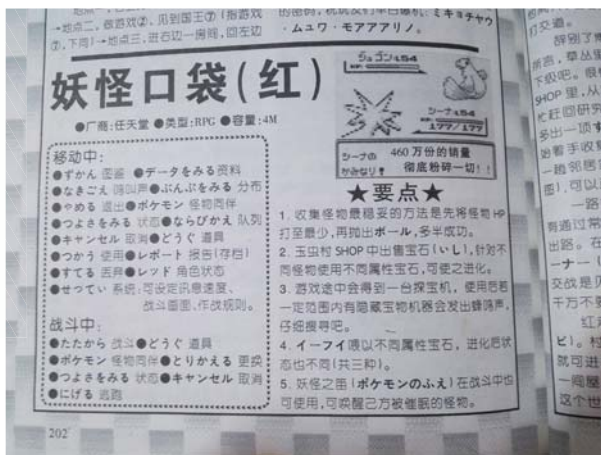 →地点二，做游戏②，见到国王⑦（指游戏
⑦,下同）→地点三,进右边一房间,回左边
ミキョチャウ
・ムユワ・モアアアリノ。
妖怪口袋(红)
●厂商:任天堂 ●类型:RPG ●容量:4M
移动中:
●ずかん 图鉴 ●データをみる资料
●なきごえ 鸣叫声●ぶんぷをみる 分布
●やめる 退出●ポケモン 怪物同伴
●つよさをみる 状态●ならびかえ 队列
●キャンセル 取消●どうぐ 道具
●つかう 使用●レポート 报告(存档)
●すてる 丢弃●レッド 角色状态
●せってい 系统:可设定讯息速度、
战斗画面、作战规则。
战斗中:
●たたから 战斗●どうぐ 道具
●ポケモン 怪物同伴●とりかえる 更换
●つよさをみる 状态●キャンセル 取消
●にげる 逃跑
202
ジュゴン
54
シーナ
54
177/177
シーナの
かみなり!
460万份的销量
彻底粉碎一切!!
★要点★
1. 收集怪物最稳妥的方法是先将怪物HP
打至最少,再抛出ボール,多半成功。
2. 玉虫村SHOP中出售宝石(いし),针对不
同怪物使用不同属性宝石,可使之进化。
3. 游戏途中会得到一台探宝机，使用后若
一定范围内有隐藏宝物机器会发出蜂鸣声,
仔细搜寻吧。
4. イーフイ喂以不同属性宝石，进化后状
态也不同(共三种)。
5. 妖怪之笛(ポケモンのふえ)在战斗中也
可使用,可唤醒己方被催眠的怪物。
打交道。
辞别了
言，草丛里
下级吧。
SHOP里,从
忙赶回研究
多出一项
始着手收集
一趟邻居
图),可以
一路
有通过常
出路。在
ーナー(
交战是
千万不要
红
ピ)。村
就可进
一间屋
这个世